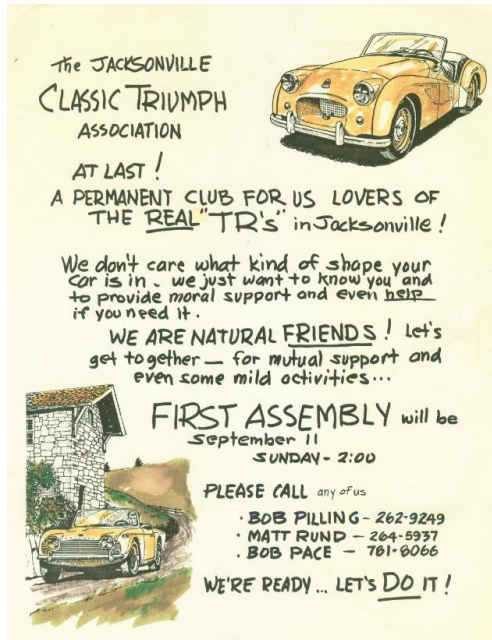 The JACKSONVILLE
CLASSIC TRIUMPH
ASSOCIATION
AT LAST!
A PERMANENT CLUB FOR US LOVERS OF
THE REAL "TR's" in Jacksonville!
We don't care what kind of shape your
car is in. we just want to know you and
to provide moral support and even help
if you need it.
WE ARE NATURAL FRIENDS! Let's
get together — for mutual support and
even some mild activities...
FIRST ASSEMBLY will be
September 11
SUNDAY - 2:00
PLEASE CALL any of us
· BOB PILLING - 262-9249
· MATT RUND - 264-5937
· BOB PACE - 781-8066
WE'RE READY... LET'S DO IT!